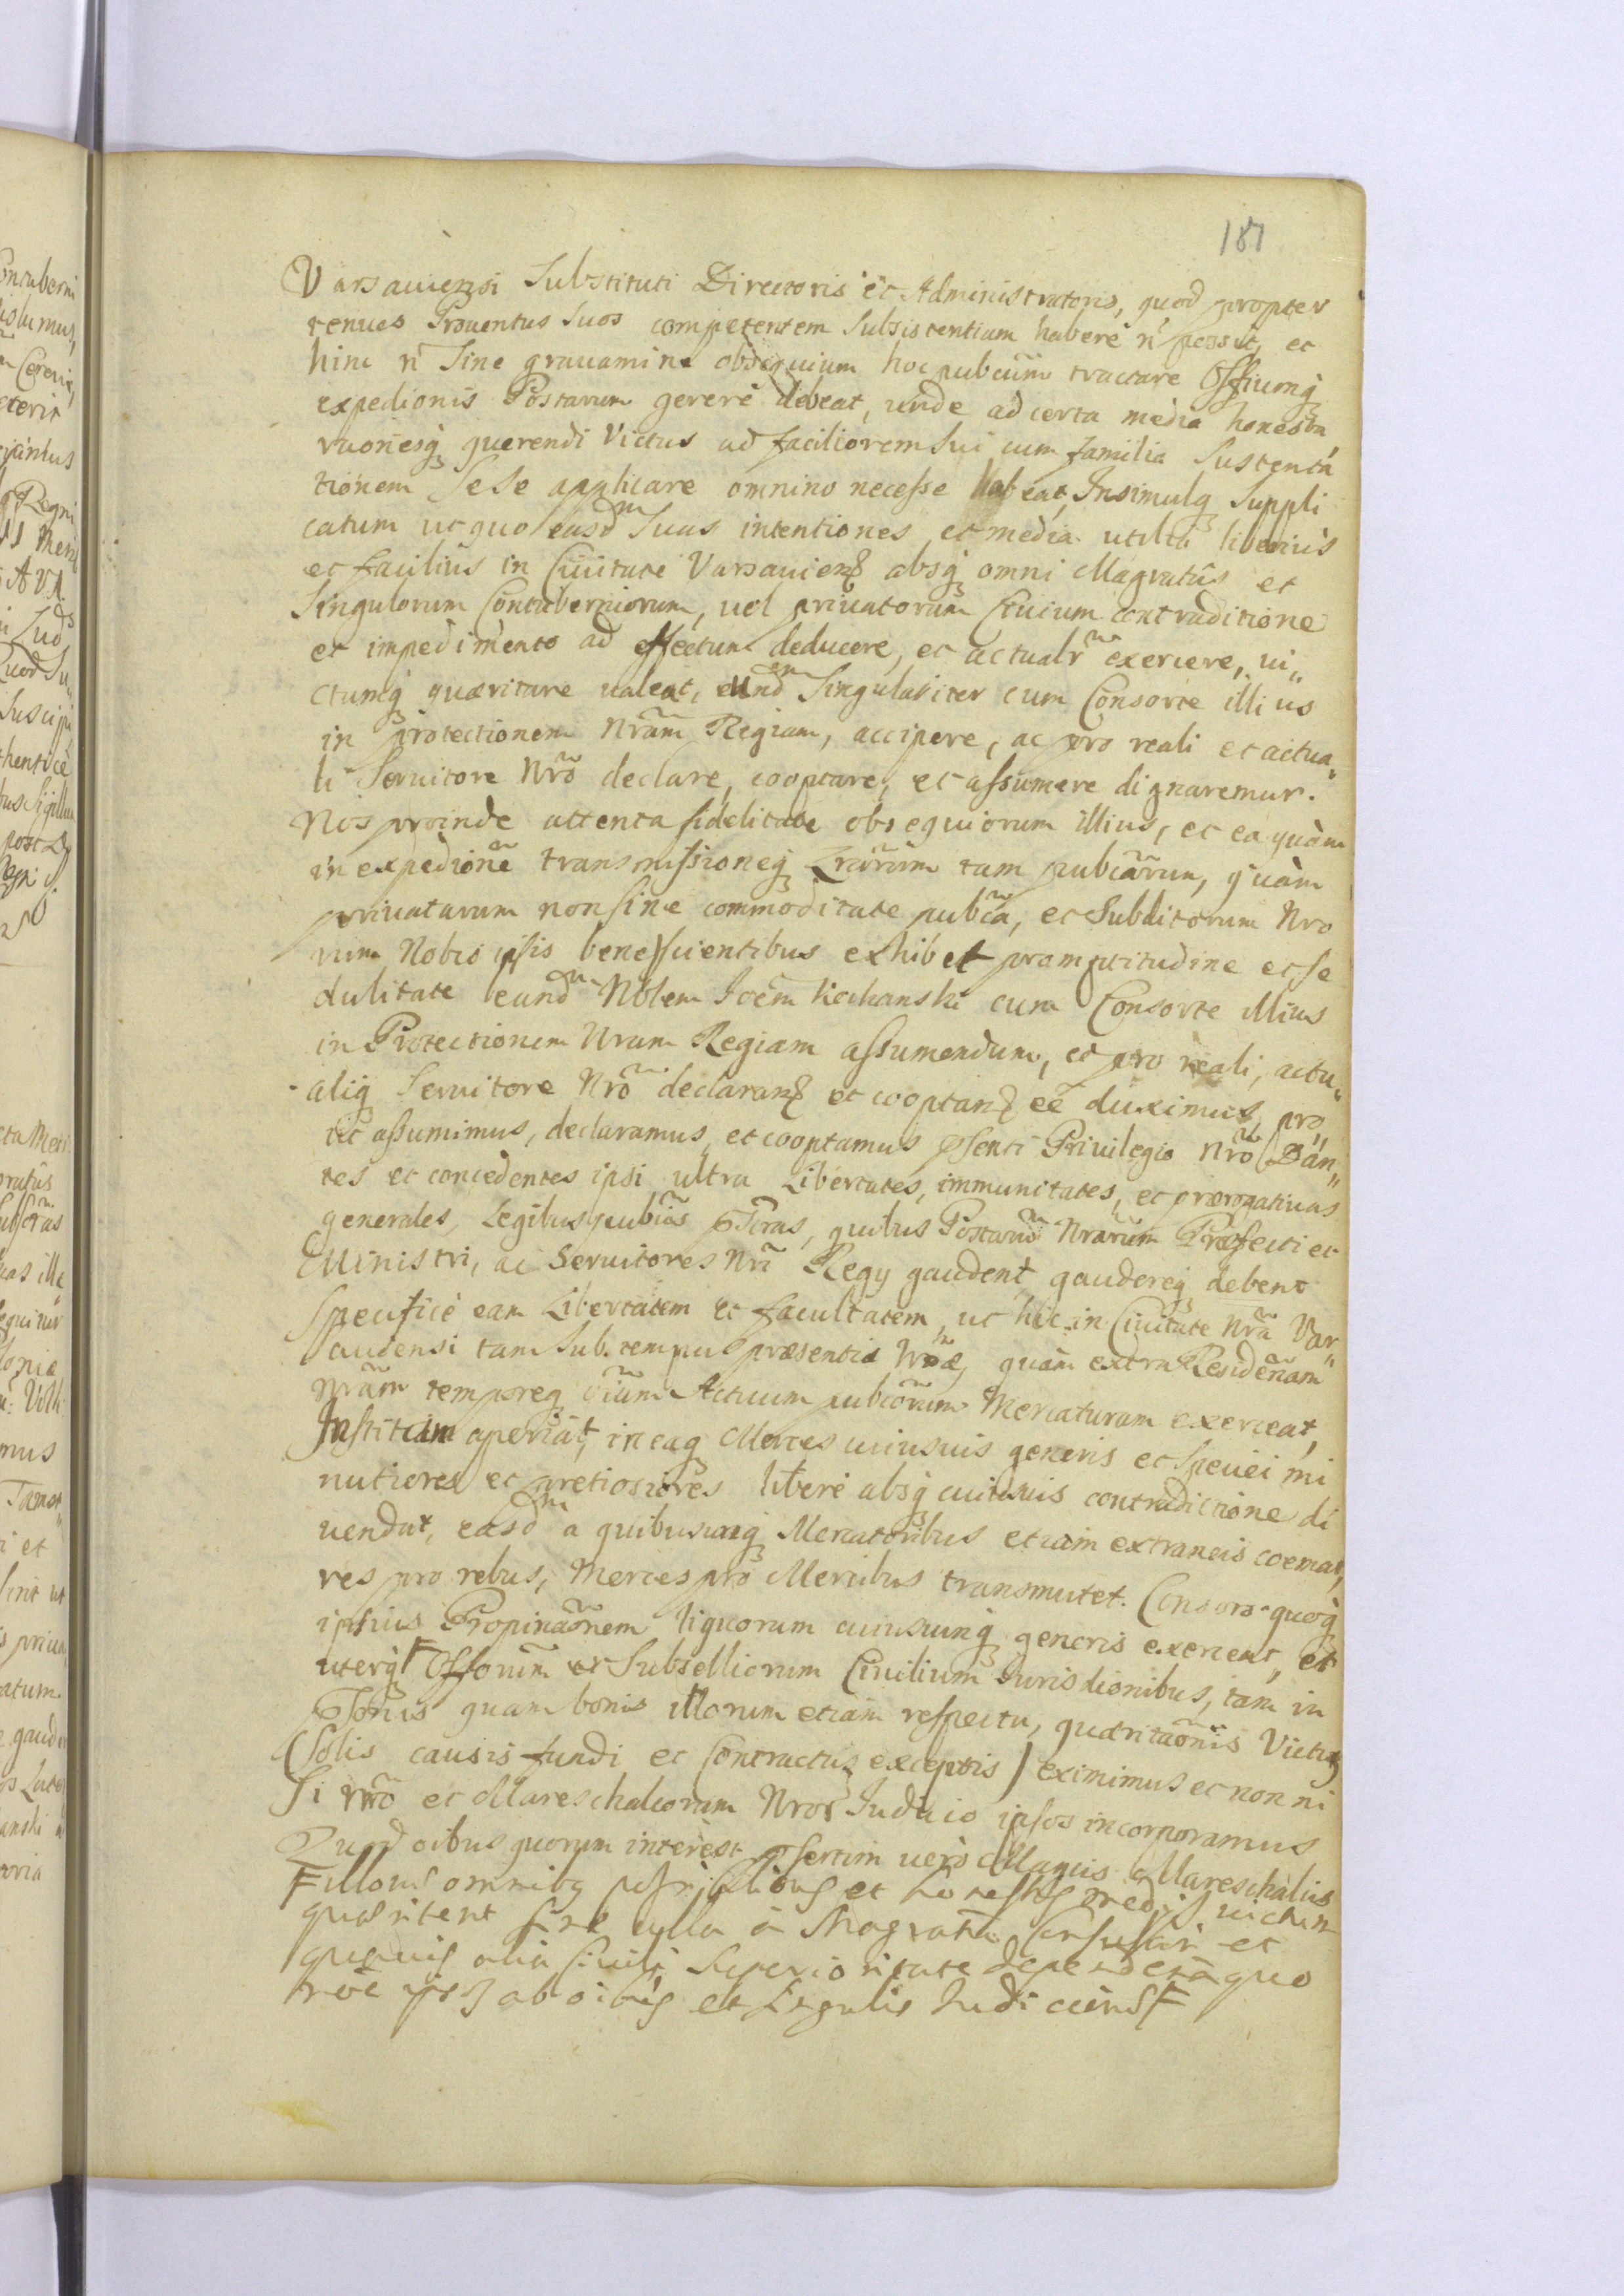 181
Varsauiensi Substituti Directoris et Administratoris, quod propter
tenues Prouentus suos competentem Subsistentiam haberé ñ possit, et
hinc ñ Sine grauamine obsequium hoc pubcum tractare Offiumq
expedionis Postarum gereré debeat, unde ad certa media honesta
raonesq querendi Victus ad faciliorem sui cum familia Sustenta
tionem Sese applicare omnino necesse habeat, Insimulq Suppli
catum ut quo easdm suas intentiones et media utilia liberius
et facilius in Ciuitate Varsauien absq omni Magratûs et
Singulorum Contuberniorum, uel priuatorum Ciuium contraditione
et impedimento ad effectum deducere, et actualr exercere, ui„
ctumq quæritare ualeat, eundem Singulariter cum Consorte illius
in protectionem Nram Regiam, accipere, ac pro reali et actua„
li Seruitore Nro declare, cooptare, et assumere dignaremur.
Nos proinde attenta fidelitate obsequiorum illius, et ea quàm
in expedione transmissioneq Lrarum tam pubcarum, quàm
priuatarum non sine commoditate pubca, et Subditorum Nro
rum Nobis ipsis beneficientibus exhibet promptitudine et se
dulitate eundm Nblem Joem Kochanski cum Consorte illius
in Protectionem Nram Regiam assumendum, et pro reali, actu„
aliq Seruitore Nro declaran et cooptan eé duximus, pro
ut assumimus, declaramus, et cooptamus psenti Priuilegio Nro Dan„
tes et concedentes ipsi ultra Libertates, immunitates, et prærogatiuas
generales, Legibus pubcis pscras, quibus Postarum Nrarum Præfecti et
Ministri, ac Seruitores Nri Regy gaudent, gaudereq debent
Specificè eam Libertatem et facultatem, ut hic in Ciuitate Nra Var„
sauiensi tam sub tempus præsentiæ Nræ, quàm extra Residenam
Nram temporeq oium Actuum pubcorum Mercaturam exerceat,
Institam aperiat, in eaq Merces cuiusuis generis et Speciei mi
nutiores et pretiosiores liberè absq cuiusuis contradictione di
uendat, easdm a quibuscunq Mercatoribus etiam extraneis coemat,
res pro rebus, Merces pro Mercibus transmutet. Consors quoq
ipsius Propinaonem liquorum cuiuscunq generis exerceat, et
uterq F Offorum et Subselliorum Ciuilium Jurisdionibus, tam in
psonis quam bonis illorum etiam respectu, quæritaonis Victus
(solis causis fundi et Contractus exceptis) eximimus et non ni
si Nro et Mareschalcorum Nror Judicio ipsos incorporamus
Quod oibus quorum interest psertim uero Magcis Mareschalcis
F illorum omnibus possibilibus et honestis medys uictum
quæritent sine ulla à Magratu Consulari et
quauis alia Ciuili Superioritate dependena quo
noe ipsos ab oibus et singulis Judiciis F